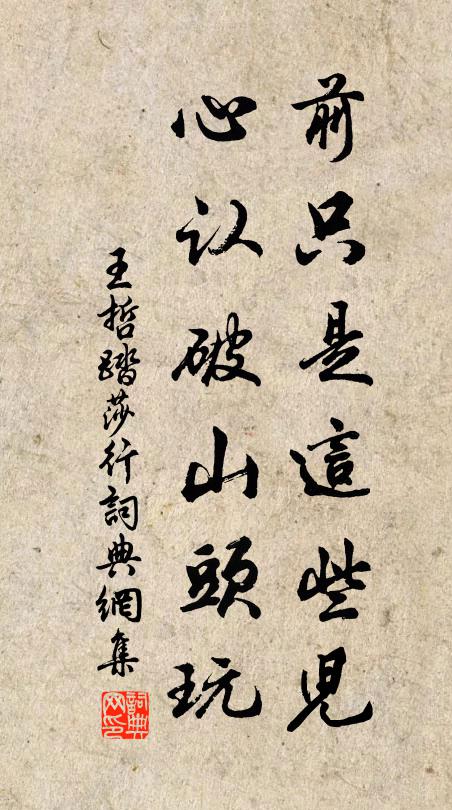 前只是這些兒
心认破山頭玩
王哲踏莎行詞典網集
詞典
网印